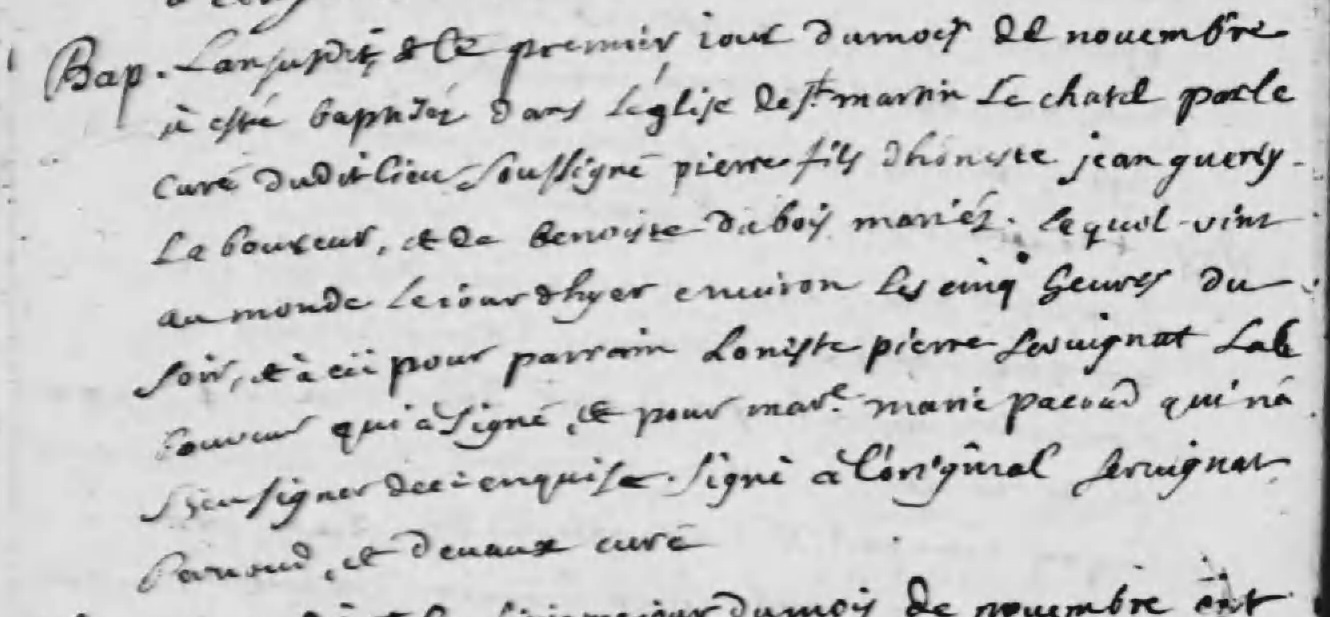 Bap. Lan susdit, & le premier iour du mois de nouembre
à esté baptisé dans léglise de st. martin Le chatel par le
curé dudit lieu soussigné pierre fils dhoneste jean guerly
Laboureur, et de benoiste dubois mariés. lequel vint
au monde le iour dhyer enuiron les cinq heures du
soir, et à eü pour parrain honiste pierre seruignat Lab
boureur qui à signé, et pour mar.e marie pacoud qui nà
sceu signer de ce enquise. signé à l'origînal seruignat
, et deuaux curé
du mois de nouembre